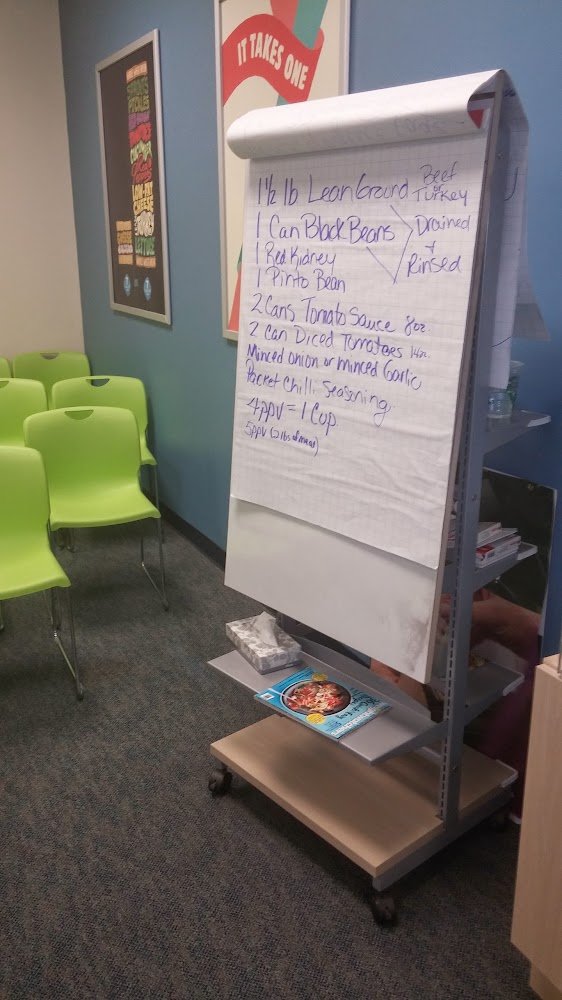 IT TAKES ONE
1 1/2 lb Lean Ground Beef or Turkey
1 Can Black Beans Drained + Rinsed
1 Red Kidney
1 Pinto Bean
2 Cans Tomato Sauce 8oz.
2 Can Diced Tomatoes 14oz.
Minced onion or Minced Garlic
Packet Chili Seasoning
4ppv = 1 Cup
5ppv (2 lbs of meat)